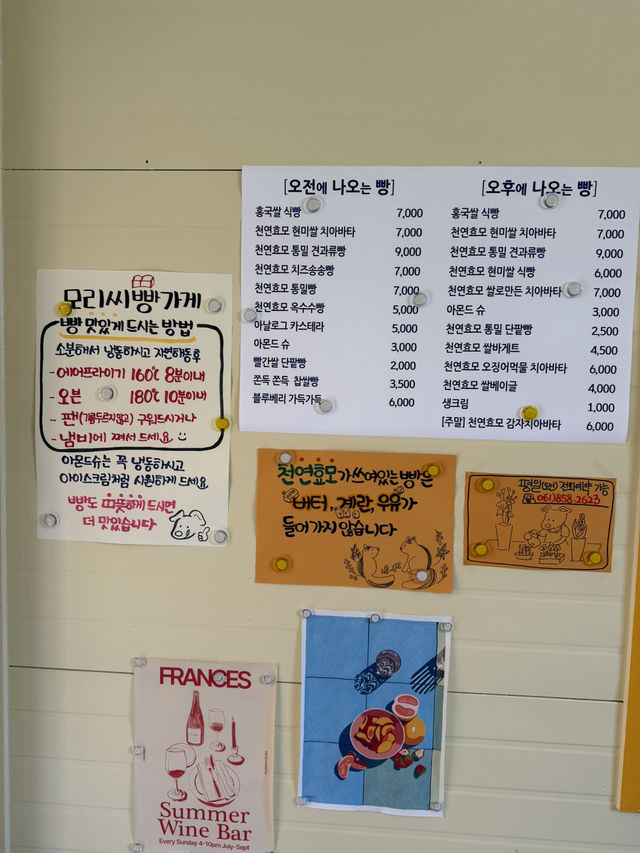 [오전에 나오는 빵]
홍국쌀 식빵 7,000
천연효모 현미쌀 치아바타 7,000
천연효모 통밀 견과류빵 9,000
천연효모 치즈송송빵 7,000
천연효모 통밀빵 7,000
천연효모 옥수수빵 5,000
아날로그 카스테라 5,000
아몬드 슈 3,000
빨간쌀 단팥빵 2,000
쫀득 쫀득 찹쌀빵 3,500
블루베리 가득가득 6,000
[오후에 나오는 빵]
홍국쌀 식빵 7,000
천연효모 현미쌀 치아바타 7,000
천연효모 통밀 견과류빵 9,000
천연효모 현미쌀 식빵 6,000
천연효모 쌀로만든 치아바타 7,000
아몬드 슈 3,000
천연효모 통밀 단팥빵 2,500
천연효모 쌀바게트 4,500
천연효모 오징어먹물 치아바타 6,000
천연효모 쌀베이글 4,000
생크림 1,000
[주말] 천연효모 감자치아바타 6,000
모리씨빵가게
빵 맛있게 드시는 방법
소분해서 냉동하시고 자연해동후
- 에어프라이기 160℃ 8분이내
- 오븐 180℃ 10분이내
- 팬(기름두르지않고) 구워드시거나
- 냄비에 쪄서 드세요
아몬드슈는 꼭 냉동하시고
아이스크림처럼 시원하게 드세요
빵도 따뜻하게 드시면
더 맛있습니다
천연효모가 쓰여있는 빵은
버터, 계란, 우유가
들어가지 않습니다
평일(오전) 전화예약 가능
061)858.2623
FRANCES
Summer
Wine Bar
Every Sunday 4-10pm July-Sept